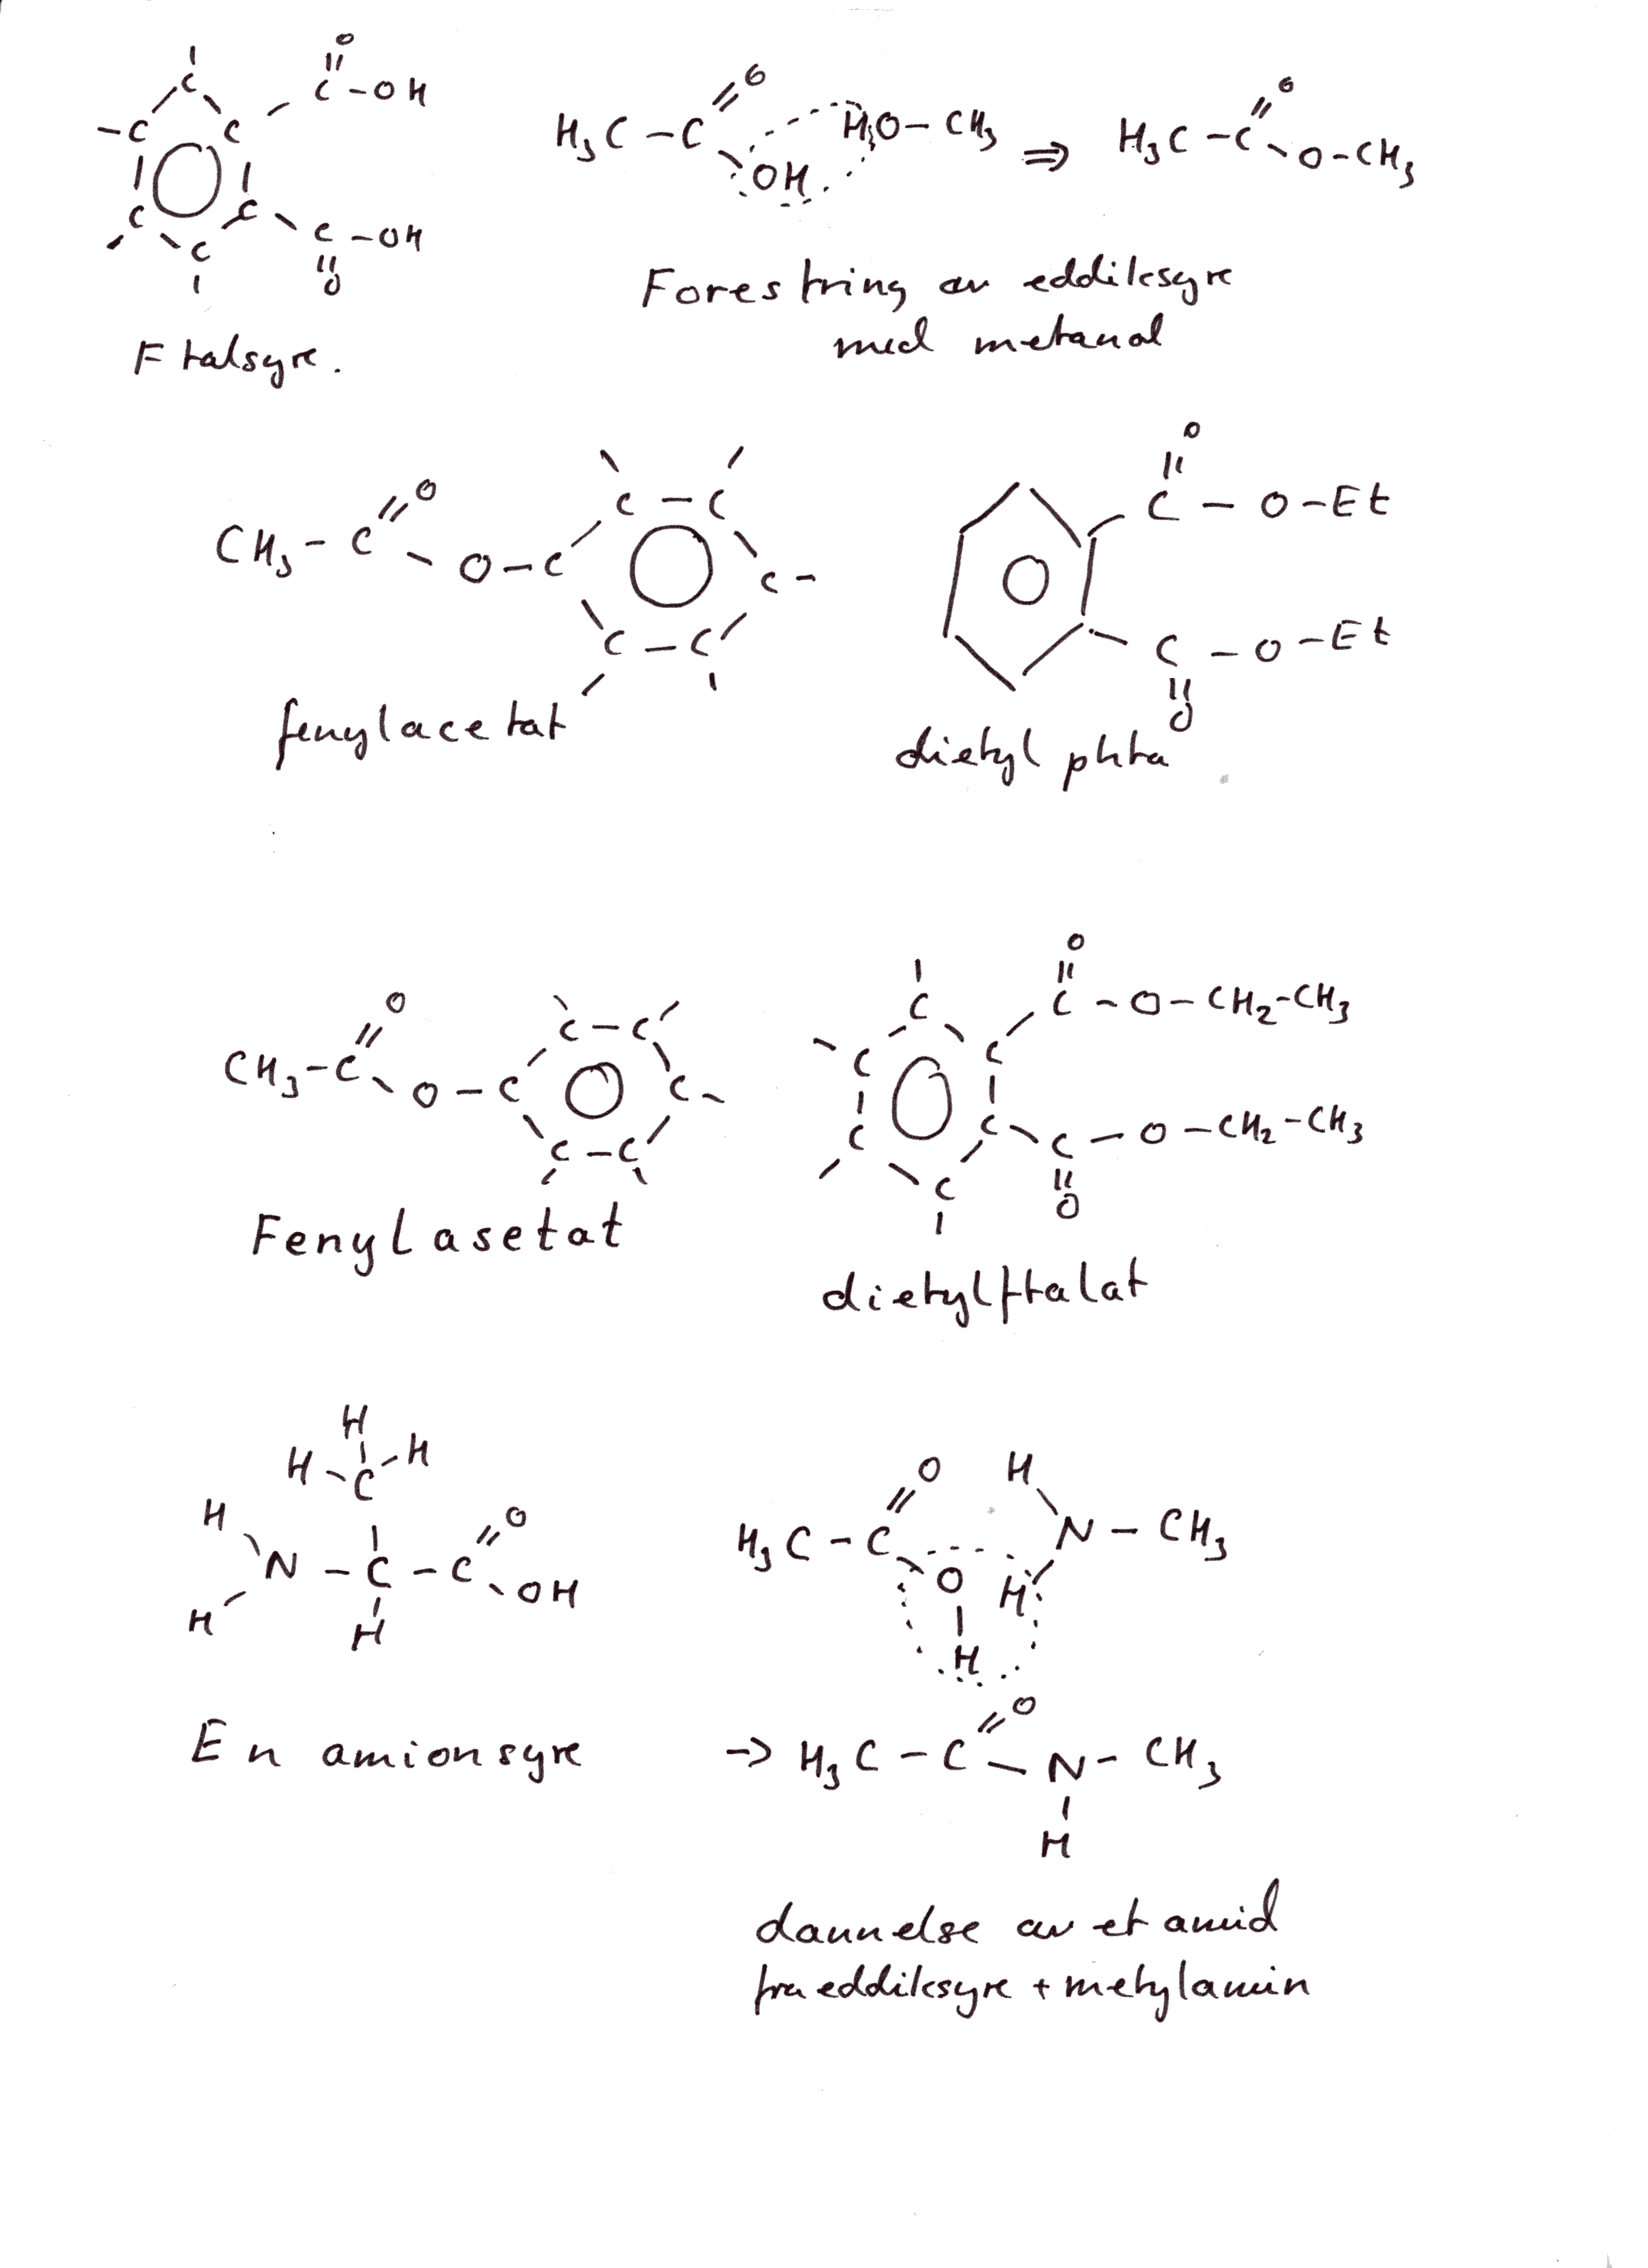 O
C-OH
C
-C C
C C
C
C-OH
O
Ftalsyre.
H3C-C O OH HO-CH3 ⇒ H3C-C O O-CH3
Forestring av eddiksyre
med metanol
CH3-C O O-C C-C C- C-C
fenylacetat
O
C-O-Et
C-O-Et
O
dietyl phta
CH3-C O O-C C-C C- C-C
Fenylasetat
O
C-O-CH2-CH3
C
C C
C C
C
C-O-CH2-CH3
O
dietylftalat
H
H-C-H
H
N-C-C O OH
H H
En amionsyre
O H
H3C-C N-CH3
O H
H
→ H3C-C O -N-CH3
H
dannelse av et amid
fra eddiksyre + metylamin